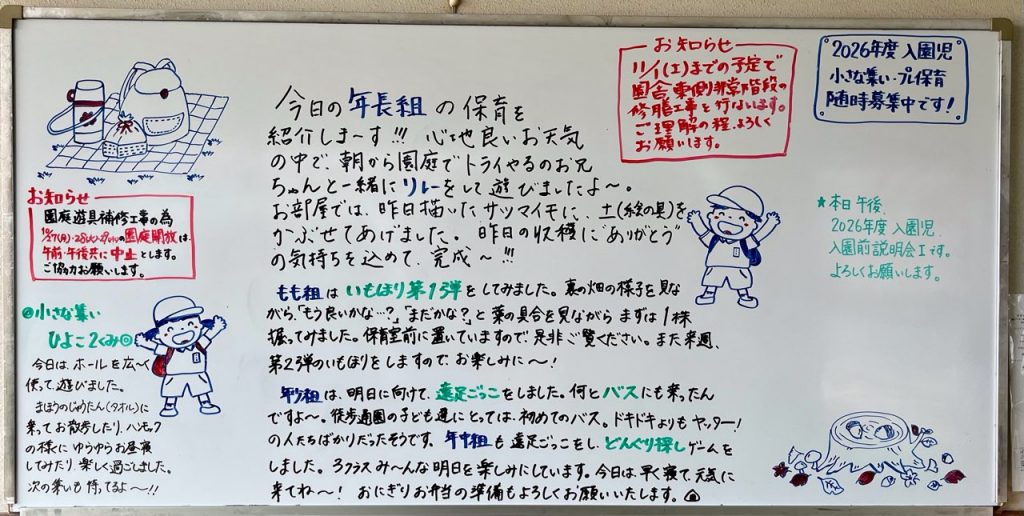 お知らせ
11/1(土)までの予定で
園舎東側非常階段の
修膳工事を行ないます。
ご理解の程、よろしく
お願いします。
2026年度 入園児
小さな集い・プレ保育
随時募集中です!
今日の年長組の保育を
紹介しま〜す!!! 心地良いお天気
の中で、朝から園庭でトライやるのお兄
ちゃんと一緒にリレーをして遊びましたよ〜。
お部屋では、昨日描いたサツマイモに、土(絵の具)を
かぶせてあげました。昨日の収穫に"ありがとう"
の気持ちを込めて、完成〜!!!
お知らせ
園庭遊具補修工事の為
10/27(月)・28(火)・29(水)の園庭開放は、
午前・午後共に中止とします。
ご協力お願いします。
★本日午後、
2026年度入園児
入園前説明会Ⅰです。
よろしくお願いします。
◎小さな集い
ひよこ2くみ◎
今日は、ホールを広〜く
使って遊びました。
まほうのじゅうたん(タオル)に
乗ってお散歩したり、ハンモック
の様にゆらゆらお昼寝
してみたり、楽しく過ごしました。
次の集いも待ってるよ〜!!
もも組はいもほり第1弾をしてみました。裏の畑の様子を見な
がら、「もう良いかな…?」「まだかな?」と葉の具合を見ながらまずは1株
掘ってみました。保育室前に置いていますので、是非ご覧ください。また来週、
第2弾のいもほりをしますので、お楽しみに〜!
年少組は、明日に向けて、遠足ごっこをしました。何とバスにも乗ったん
ですよ〜。徒歩通園の子ども達にとっては、初めてのバス。ドキドキよりもヤッター!
の人たちばかりだったそうです。年中組も遠足ごっこをし、どんぐり探しゲームを
しました。3クラスみ〜んな明日を楽しみにしています。今日は、早く寝て、元気に
来てね〜! おにぎりお弁当の準備もよろしくお願いいたします。